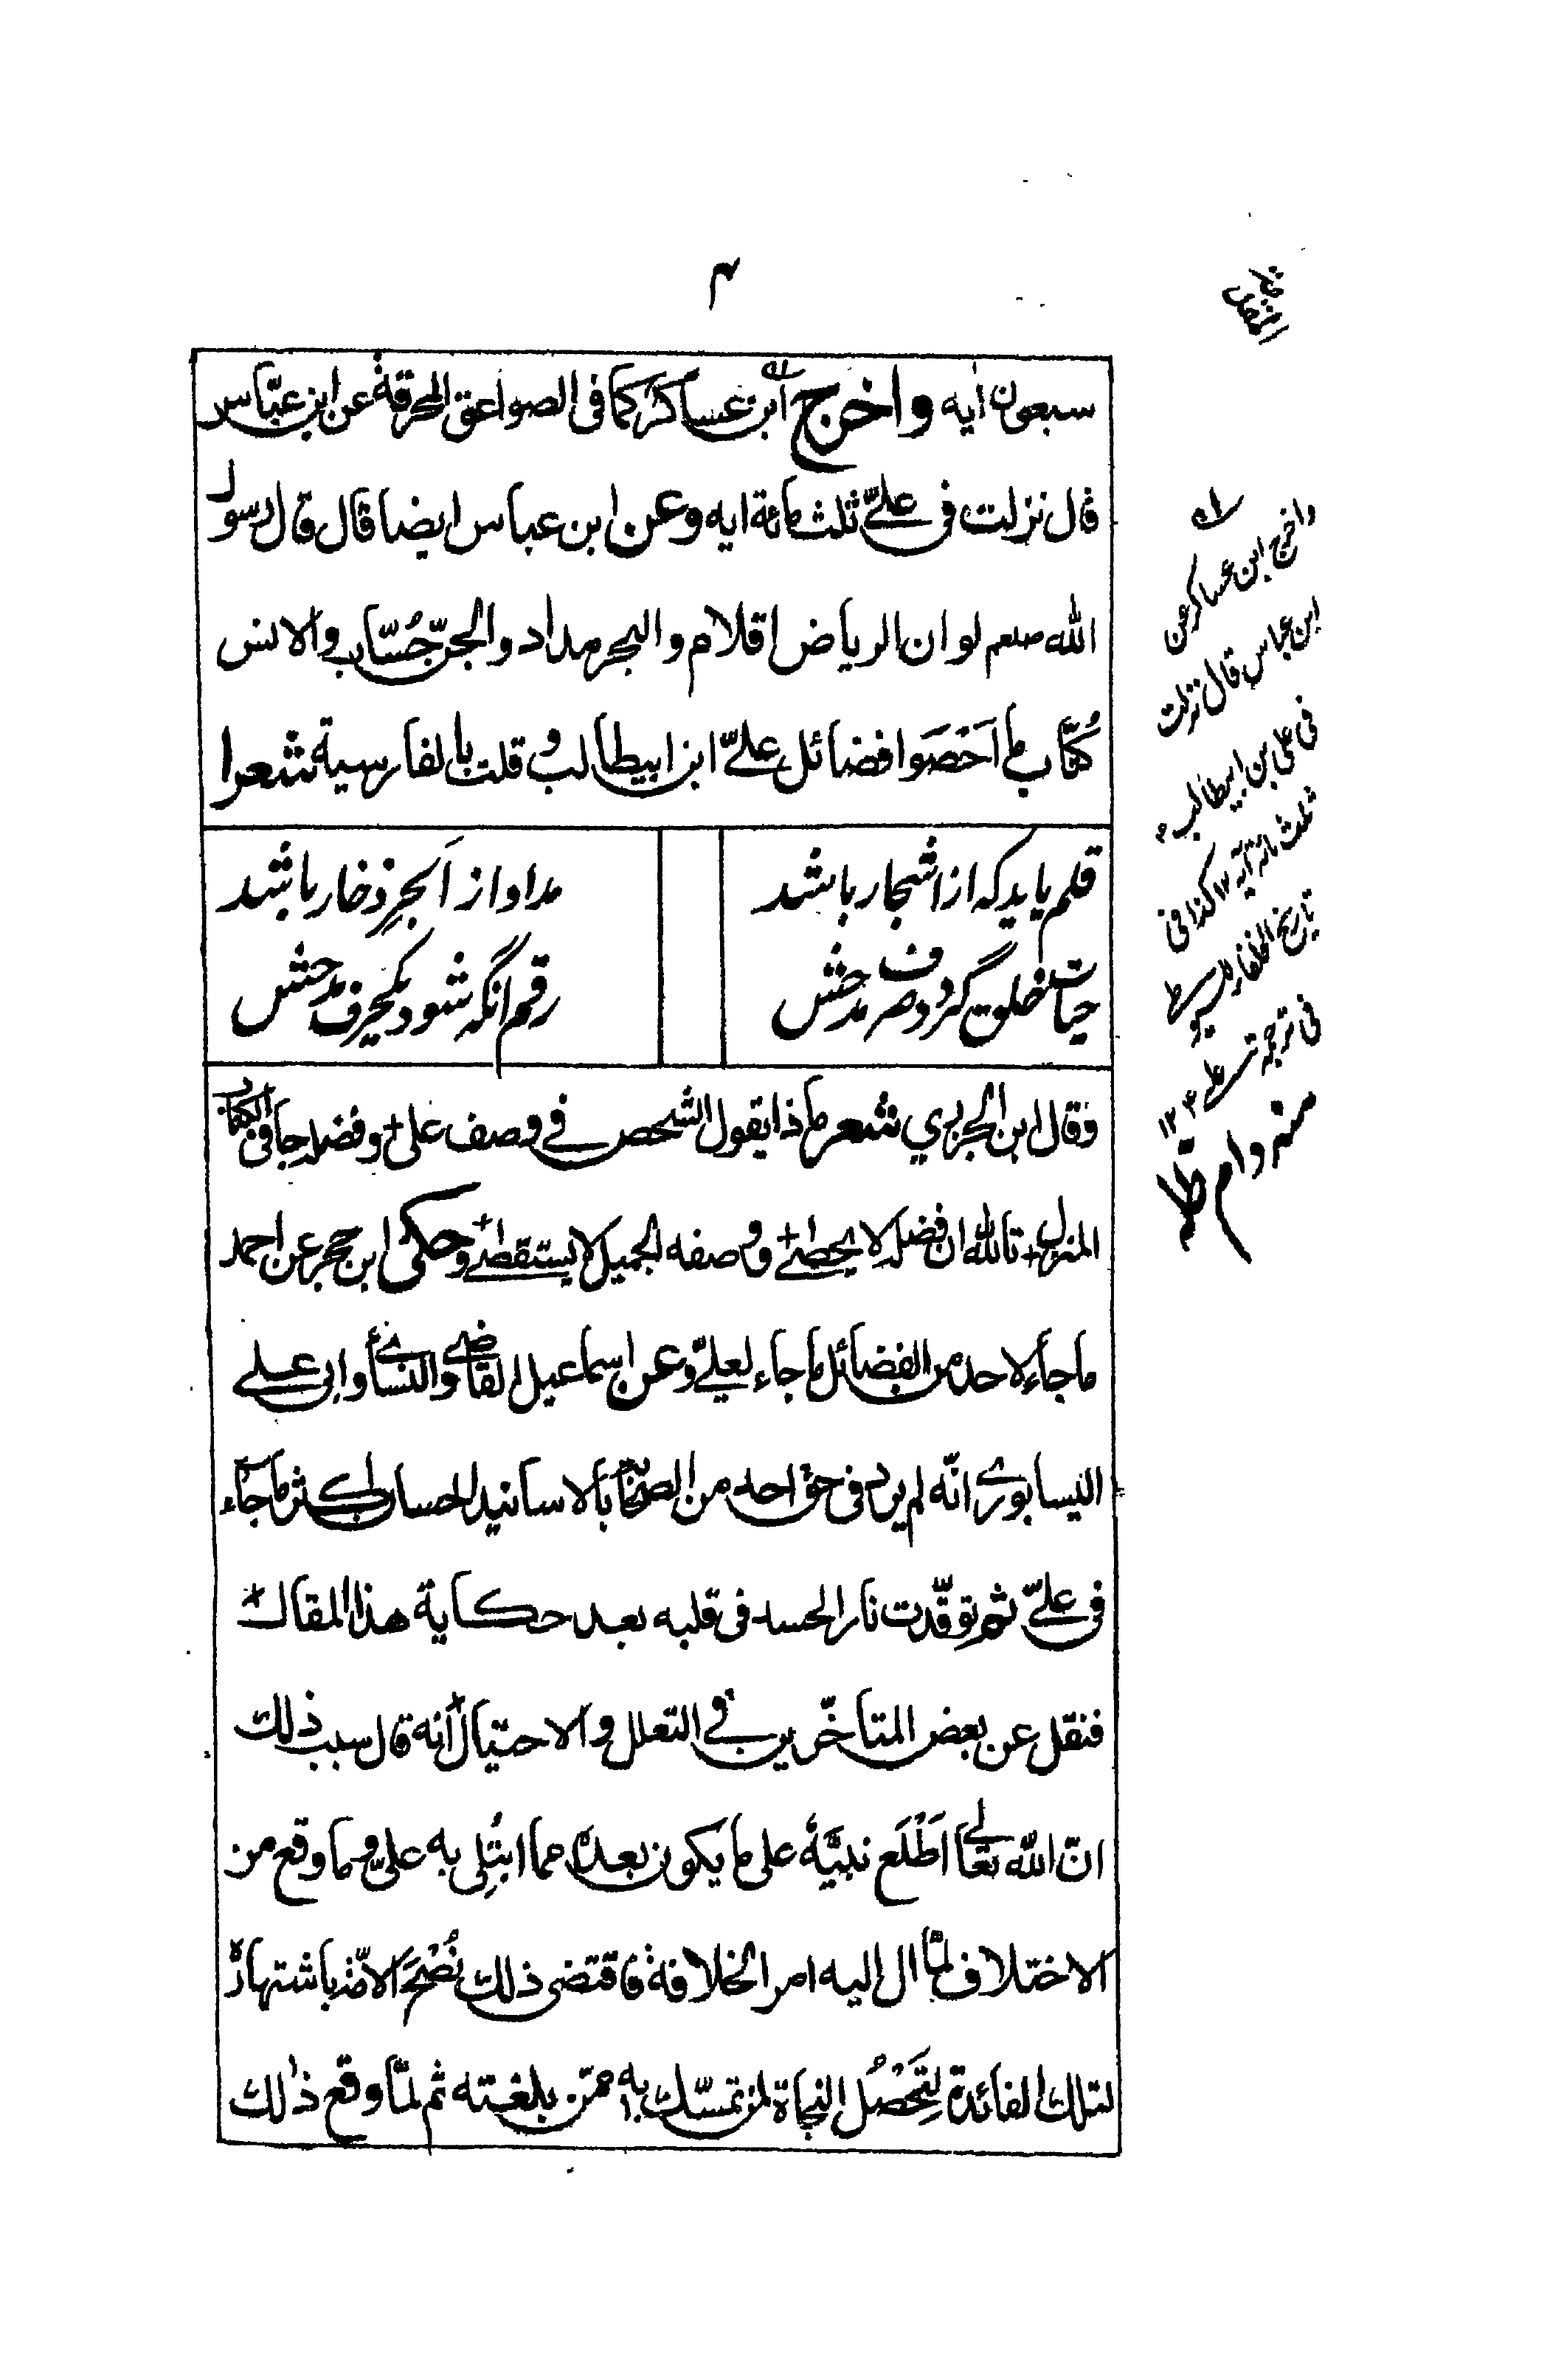 ۴
سبعون ایه واخرج ابن عساکر کما فی الصواعق المحرقة عن ابن عبّاس
قال نزلت فی علیّ ثلث مائة ایه وعن ابن عباس ایضا قال قال رسول
الله صلعم لو ان الریاض اقلام والبحر مداد والجنّ حُسّاب والانس
کُتّاب ما اَحْصَوا فضائل علیّ ابن ابیطالب و قلت بالفارسیة شعرا
قلم باید که از اشجار باشد
مداد از ابحر ذخار باشد
حیات خلق گردد صرف مدحش
رقم انگه شود یکحرف مدحش
وقال ابن الجزری شعر ماذا یقول الشخص فے وصف علی + وفضله جا فی الکتاب
المنزل + تالله ان فضله لا یحصٰے + ووصفه الجمیل لا یستقصٰے + وحکی ابن حجر عن احمد
ما جاء لاحد من الفضائل ما جاء لعلیّ وعن اسماعیل القاضے والنسائے وابی علے
النیسابورے انّه لم یرد فی حق احد من الصحابة بالاسانید الحسان اکثر ما جاء
فی علیّ ثم توقّدت نار الحسد فی قلبه بعد حکایة هذا المقال
فنقل عن بعض المتاخّرین فے التعلل والاحتیال انه قال سبب ذلک
انّ الله تعالے اَطْلَع نبیَّهُ علی ما یکون بعده مما ابتُلِی به علیّ وما وقع من
الاختلاف لمّا ال الیه امر الخلافة فاقتضی ذلک نُصْحَ الامّة باشتهاره
لتلک الفائدة لِتَحْصُل النجاة لمن تمسّک به ممّن بلغته ثم لمّا وقع ذلک
واخرج ابن عساکر عن
ابن عباس قال نزلت
فی علی بن ابیطالب
ثلث مائة آیة ۱۲ کذا فی
تاریخ الخلفاء للسیوطی
فی ترجمة علی ۱۲
منه دام ظله